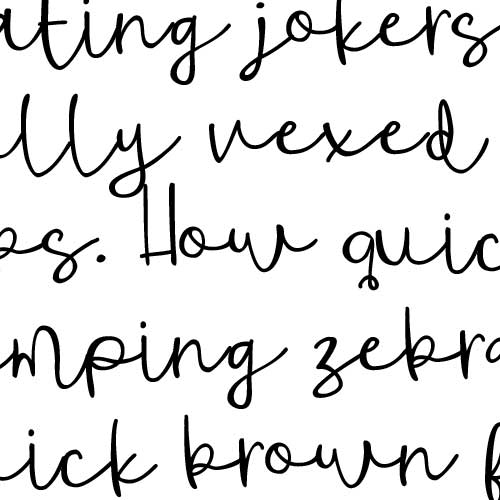 ating jokers
ally vexed
ps. How quic
mping zebra
ick brown f